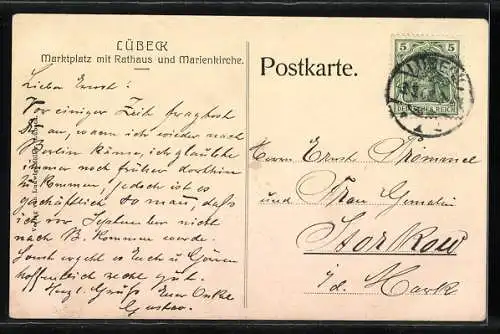 LÜBECK
Marktplatz mit Rathaus und Marienkirche.
Lieber Ernst!
Vor einiger Zeit fragtest
Du an, wann ich wieder nach
Berlin käme, ich glaubte
immer noch früher dorthin
zu kommen, jedoch ist es
geschäftlich so mau, daß
ich vor September nicht
nach B. kommen werde.
Sonst ergeht es Euch u
hoffentlich recht gut.
Herzl. Gruß Euer Onkel
Gustav.
Postkarte.
5 5
DEUTSCHES REICH
Herrn Ernst Trömmel
und Frau Gemalin
Storkow
i/d. Mark